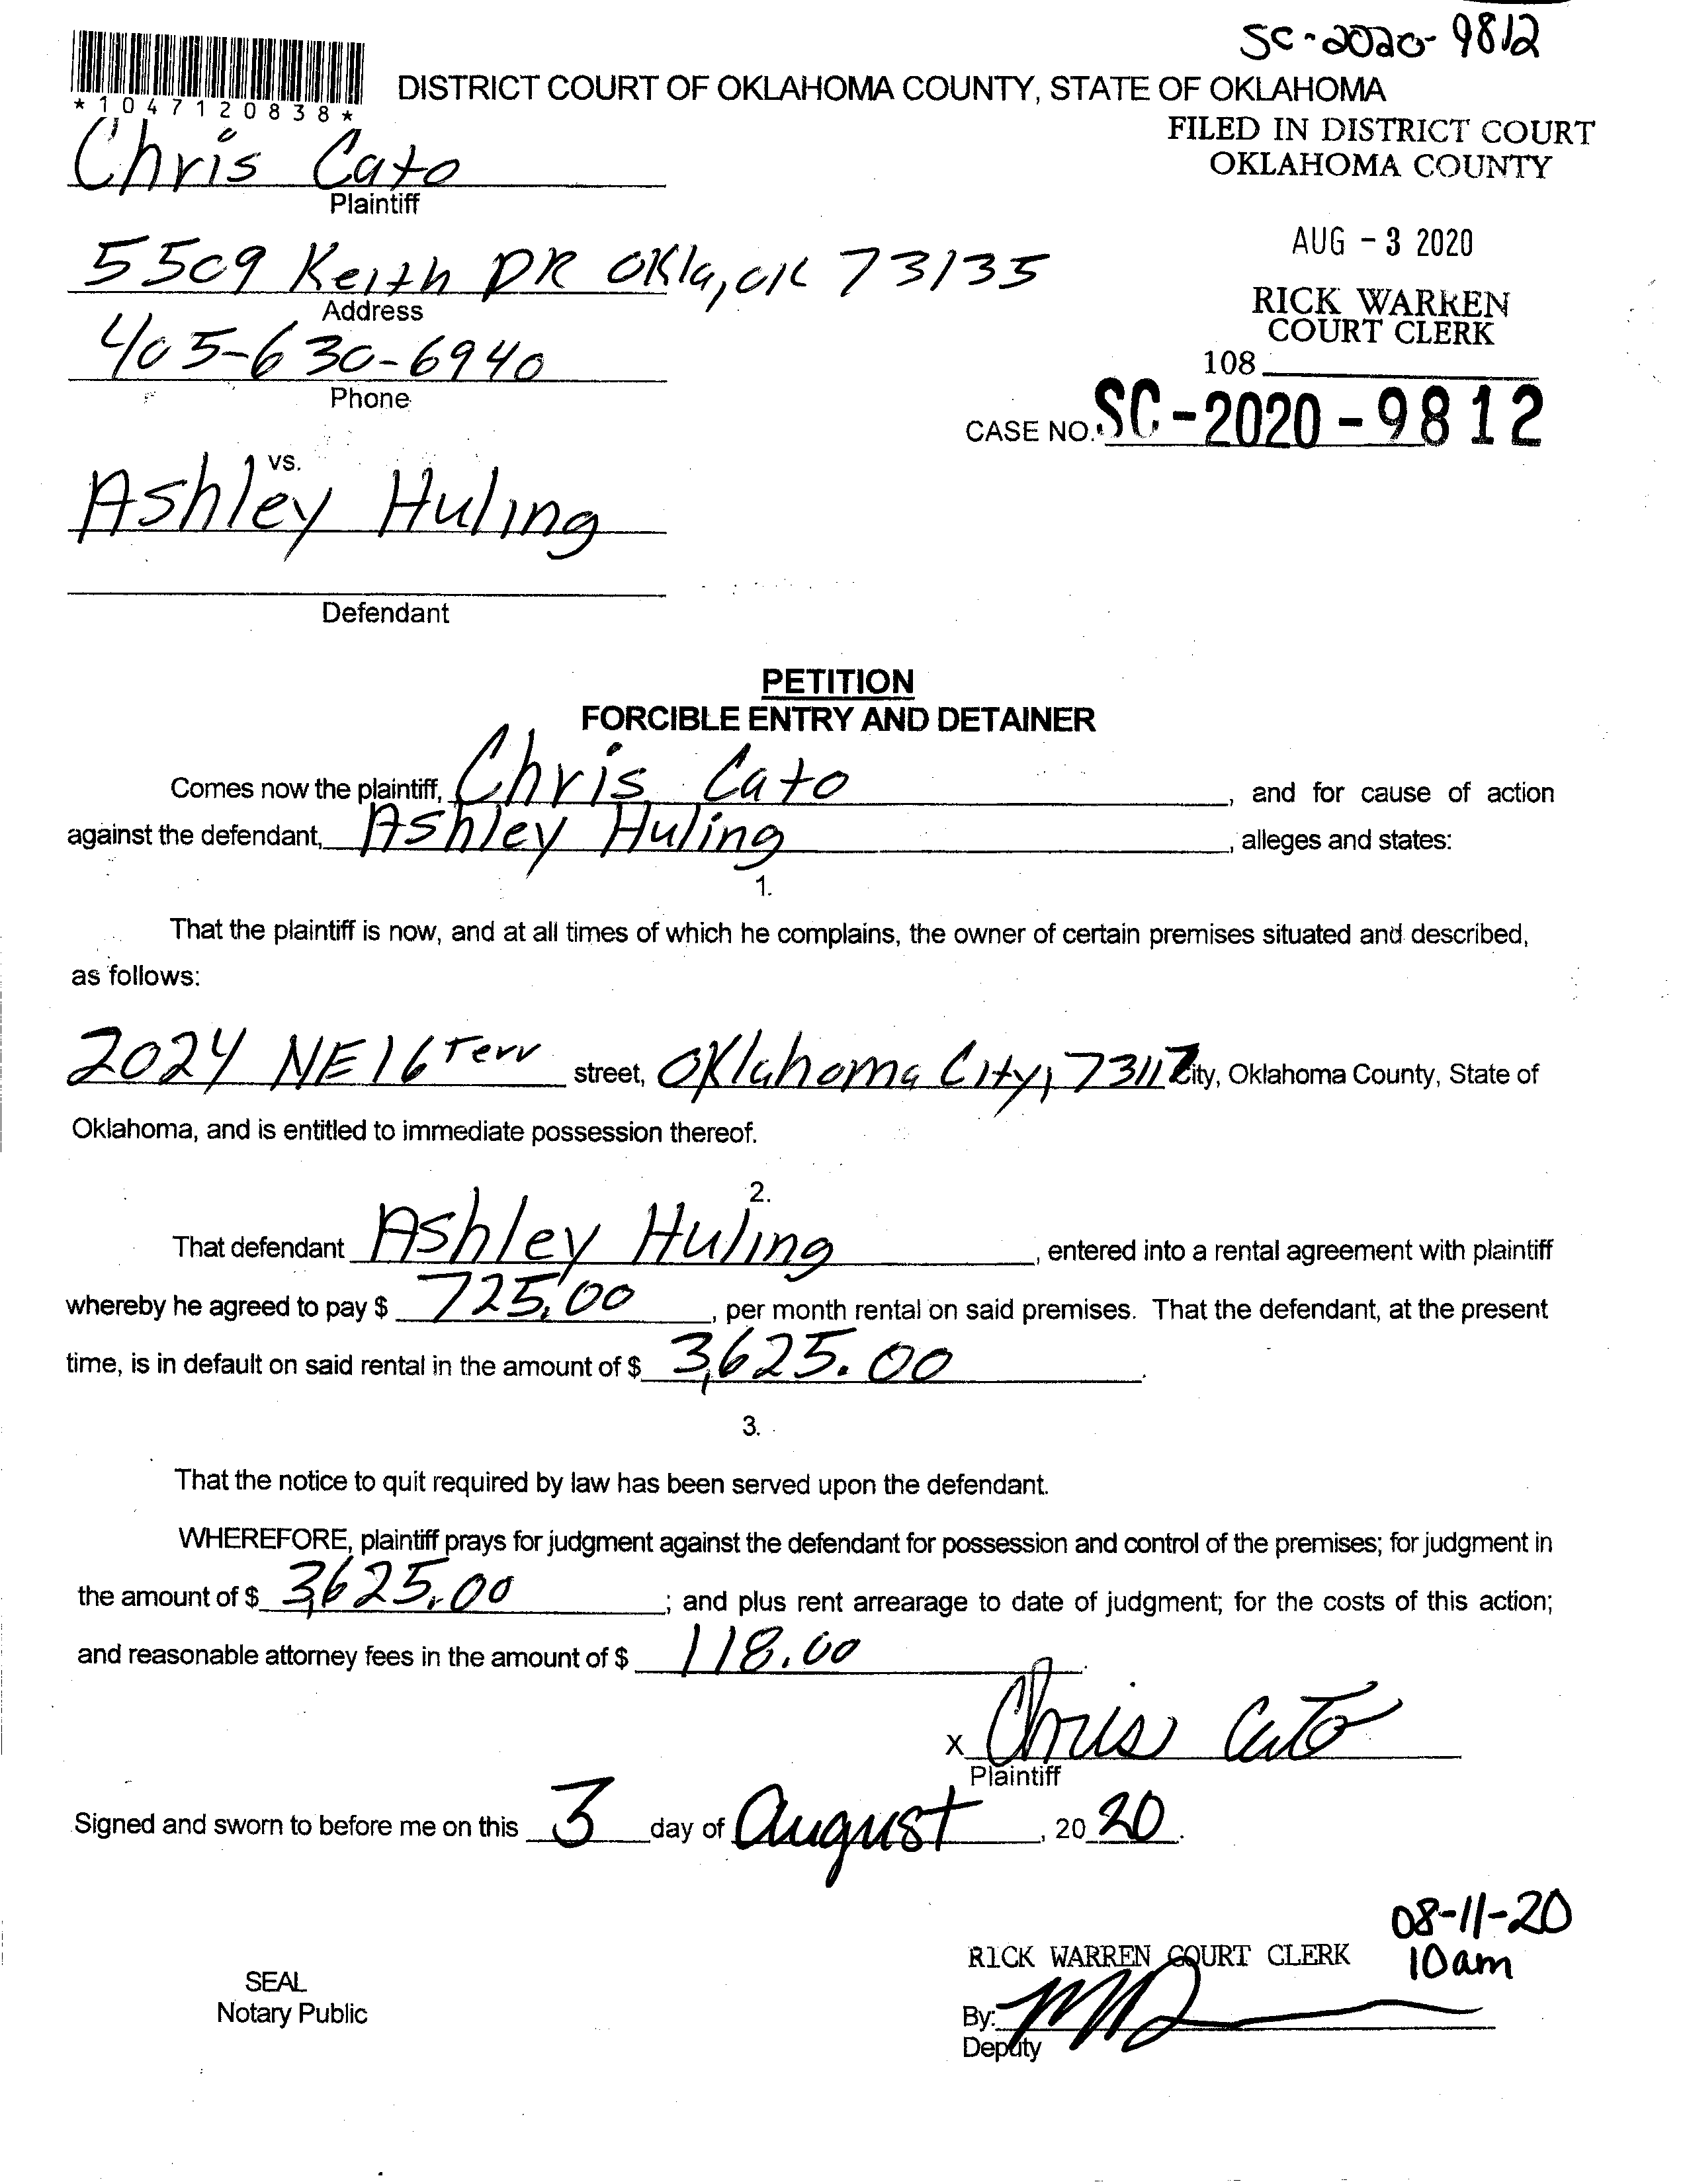 SC-2020-9812
*1047120838*
DISTRICT COURT OF OKLAHOMA COUNTY, STATE OF OKLAHOMA
FILED IN DISTRICT COURT
OKLAHOMA COUNTY
Chris Cato
Plaintiff
AUG - 3 2020
5509 Keith DR Okla, OK 73135
Address
RICK WARREN
COURT CLERK
405-630-6940
Phone
108
CASE NO. SC-2020-9812
vs.
Ashley Huling
Defendant
PETITION
FORCIBLE ENTRY AND DETAINER
Comes now the plaintiff, Chris Cato, and for cause of action
against the defendant, Ashley Huling, alleges and states:
1.
That the plaintiff is now, and at all times of which he complains, the owner of certain premises situated and described,
as follows:
2024 NE 16 Terr street, Oklahoma City, 73117 City, Oklahoma County, State of
Oklahoma, and is entitled to immediate possession thereof.
2.
That defendant Ashley Huling, entered into a rental agreement with plaintiff
whereby he agreed to pay $ 725.00, per month rental on said premises. That the defendant, at the present
time, is in default on said rental in the amount of $ 3,625.00.
3.
That the notice to quit required by law has been served upon the defendant.
WHEREFORE, plaintiff prays for judgment against the defendant for possession and control of the premises; for judgment in
the amount of $ 3,625.00; and plus rent arrearage to date of judgment; for the costs of this action;
and reasonable attorney fees in the amount of $ 118.00.
X Chris Cato
Plaintiff
Signed and sworn to before me on this 3 day of August, 20 20.
08-11-20
10am
RICK WARREN COURT CLERK
SEAL
Notary Public
By:
Deputy